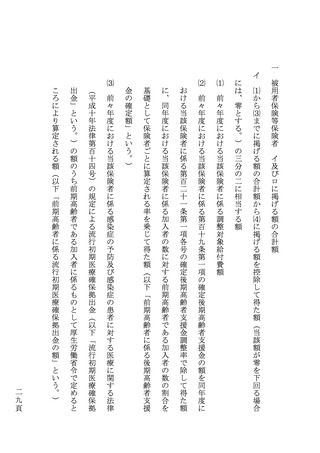 一　被用者保険等保険者　イ及びロに掲げる額の合計額
イ　⑴から⑶までに掲げる額の合計額から⑷に掲げる額を控除して得た額（当該額が零を下回る場合
には、零とする。）の三分の二に相当する額
⑴　前々年度における当該保険者に係る調整対象給付費額
⑵　前々年度における当該保険者に係る第百十九条第一項の確定後期高齢者支援金の額を同年度に
おける当該保険者に係る第百二十一条第一項各号の確定後期高齢者支援金調整率で除して得た額
に、同年度における当該保険者に係る加入者の数に対する前期高齢者である加入者の数の割合を
基礎として保険者ごとに算定される率を乗じて得た額（以下「前期高齢者に係る後期高齢者支援
金の確定額」という。）
⑶　前々年度における当該保険者に係る感染症の予防及び感染症の患者に対する医療に関する法律
（平成十年法律第百十四号）の規定による流行初期医療確保拠出金（以下「流行初期医療確保拠
出金」という。）の額のうち前期高齢者である加入者に係るものとして厚生労働省令で定めると
ころにより算定される額（以下「前期高齢者に係る流行初期医療確保拠出金の額」という。）
二九頁